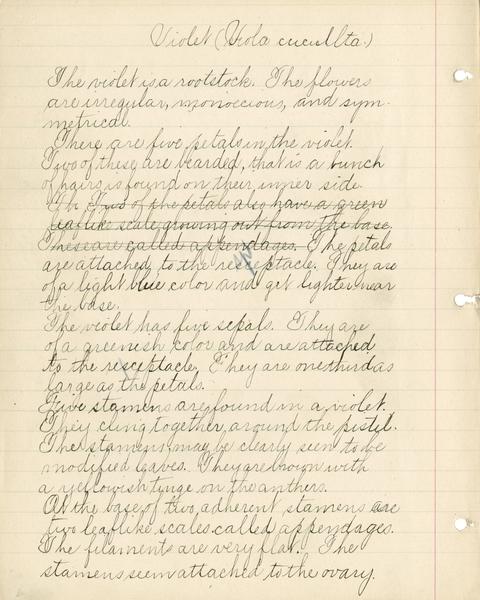 Violet (Viola cucullta.)
The violet is a rootstock. The flowers
are irregular, monoecious, and sym-
metrical.
There are five petals in the violet.
Two of these are bearded, that is a bunch
of hairs is found on their inner side.
Two of the petals also have a green
leaflike scale growing out from the base.
These are called appendages. The petals
are attached to the resceptacle. They are
of a light blue color and get lighter near
the base.
The violet has five sepals. They are
of a greenish color and are attached
to the resceptacle. They are one third as
large as the petals.
Five stamens are found in a violet.
They cling together around the pistil.
The stamens may be clearly seen to be
modified leaves. They are brown with
a yellowish tinge on the anthers.
At the base of two adherent stamens are
two leaflike scales called appendages.
The filaments are very flat. The
stamens seem attached to the ovary.